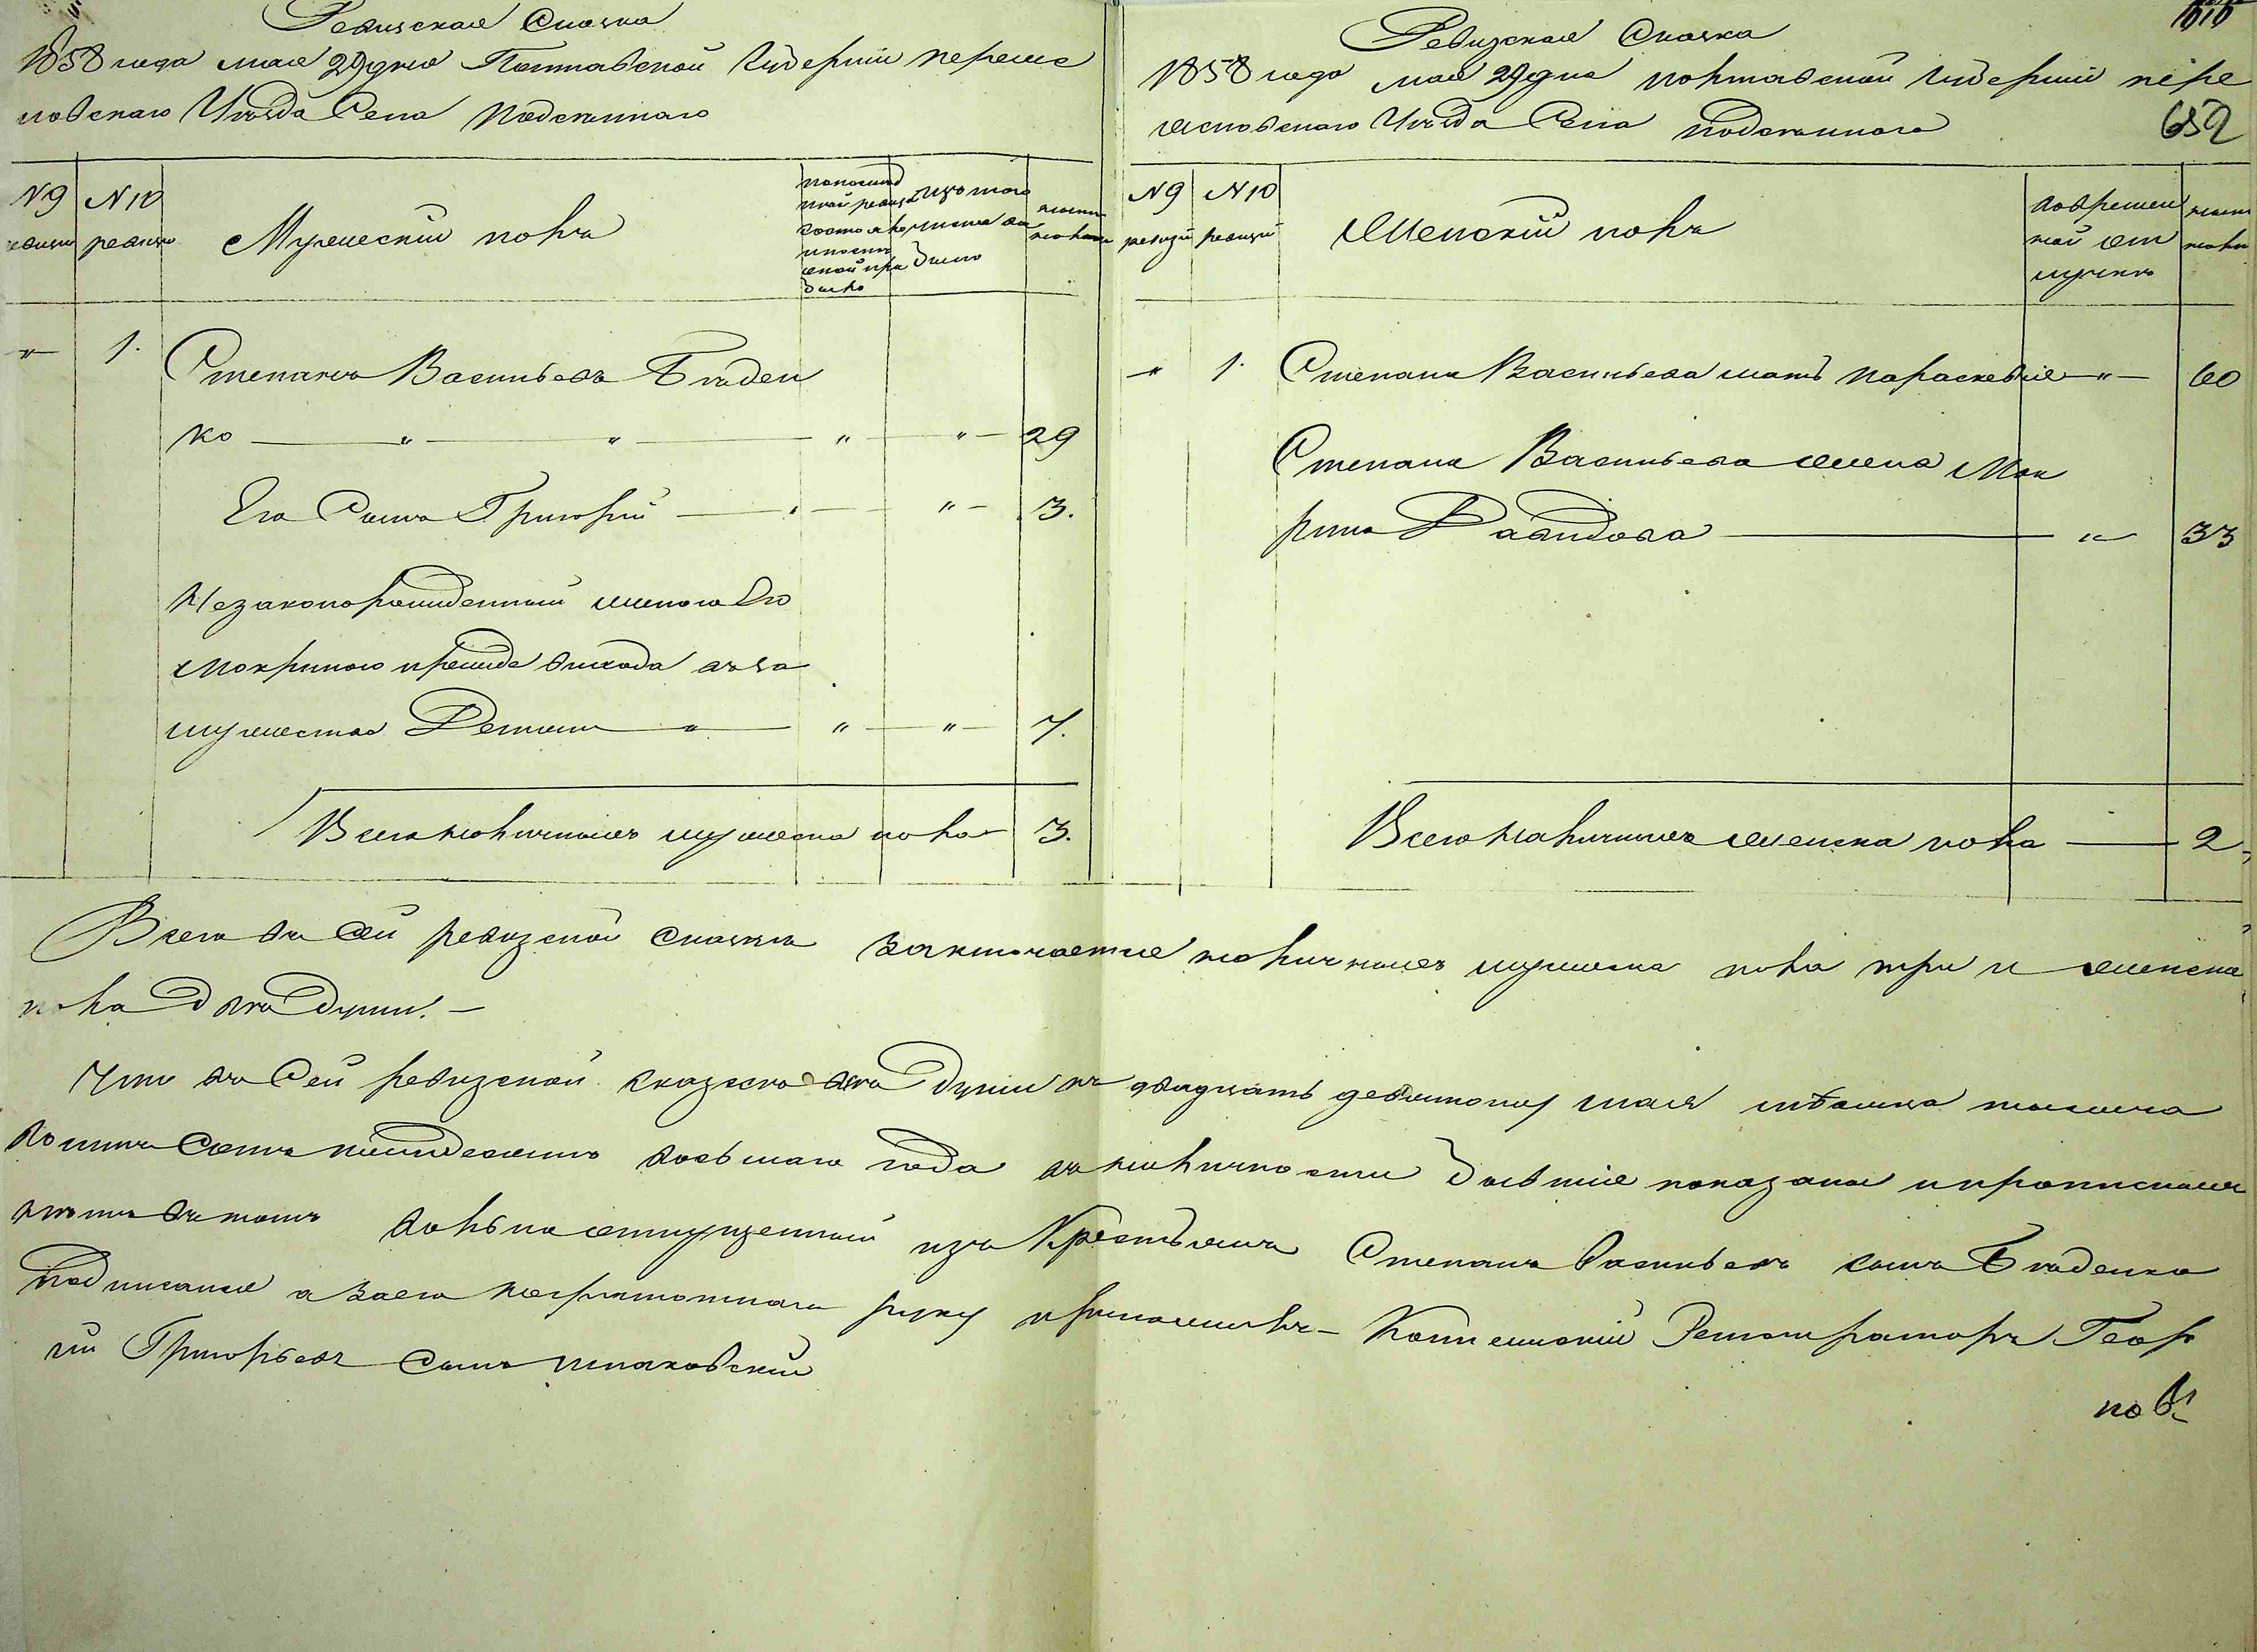 Ревизская Сказка
1858 года мая 29 дня Полтавской Губернии переяс
ловскаго Уѣзда Села Подсѣннаго
N 9 ревизи
N 10 ревизи
Мужескій полъ
по послед
ней ревизи
состояло
изъ того
числа вы
было
ныне
на лицо
" 1. Степанъ Васильевъ Бѣден
ко — " — " — " — " — 29
Его Сынъ Григорій — " — " — 3.
Незаконорожденный женою Его
Мокриною прежде выхода въ за
мужество — " — " — " — 7.
Всего наличныхъ мужеска пола 3.
Ревизская Сказка
1858 года мая 29 дня полтавской Губерній пере
ясловскаго Уѣзда Села подсѣннаго
652
N 9 ревизій
N 10 ревизій
Женскій полъ
во времен
ной от
лучкѣ
ныне
на лицо
" 1. Степана Васильева мать параскевия — " — 60
Степана Васильева жена Мок
рина Давидова — " 33
Всего наличныхъ женска пола — 2
Всего въ сей ревизской Сказкѣ заключается наличныхъ мужеска пола три и женска
пола двѣ Души. —
Что въ Сей ревизской сказке всѣ Души къ двадцать девятому мая мѣсяца тысяча
восимъ Сотъ пятдесятъ восьмаго года въ наличности бывшіе показаны и прописныхъ
нѣтъ въ томъ вольно отпущенный изъ Крестьянъ Степанъ Васильевъ сынъ Бѣденко
подписался а за его неграмотнаго руку приложилъ — Коллежскій Регистраторъ Геор
гій Григорьевъ Сынъ